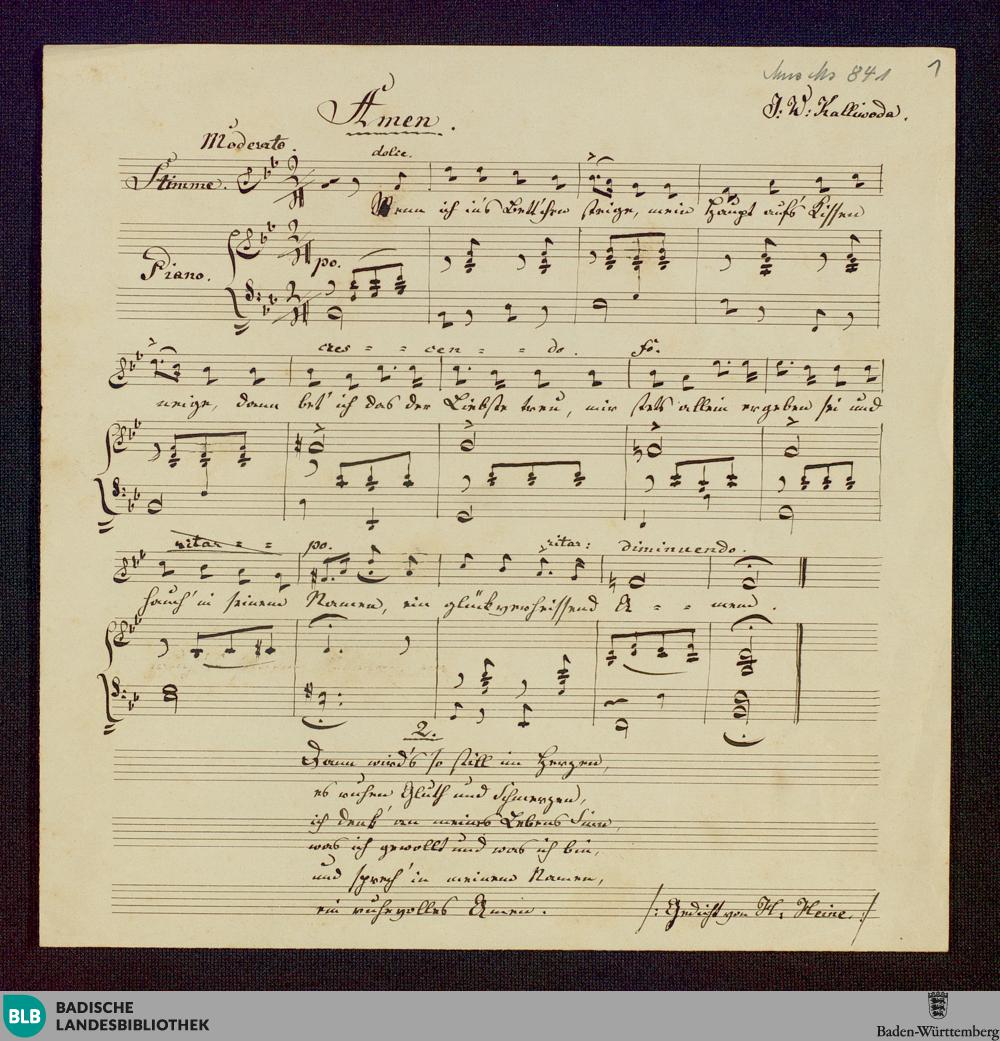 Mus Ms 841 1
Amen.
J: W: Kalliwoda.
Moderato.
dolce.
Stimme.
Wenn ich in's Bettchen steige, mein Haupt auf's Kissen
Piano.
po.
cres = = cen = = do. fo.
neige, dann bet' ich das der Liebste treu, mir stets allein ergeben sei und
ritar = = po. ritar: diminuendo.
hauch' in seinem Namen, ein glückverheissend A = = men.
2.
Dann wird's so still im Herzen,
es ruhen Gluth und Schmerzen,
ich denk' an meines Lebens Sinn,
was ich gewollt und was ich bin,
und sprech' in meinem Namen,
ein ruhevolles Amen.
/: Gedicht von H: Heine. :/
BLB BADISCHE
LANDESBIBLIOTHEK
Baden-Württemberg